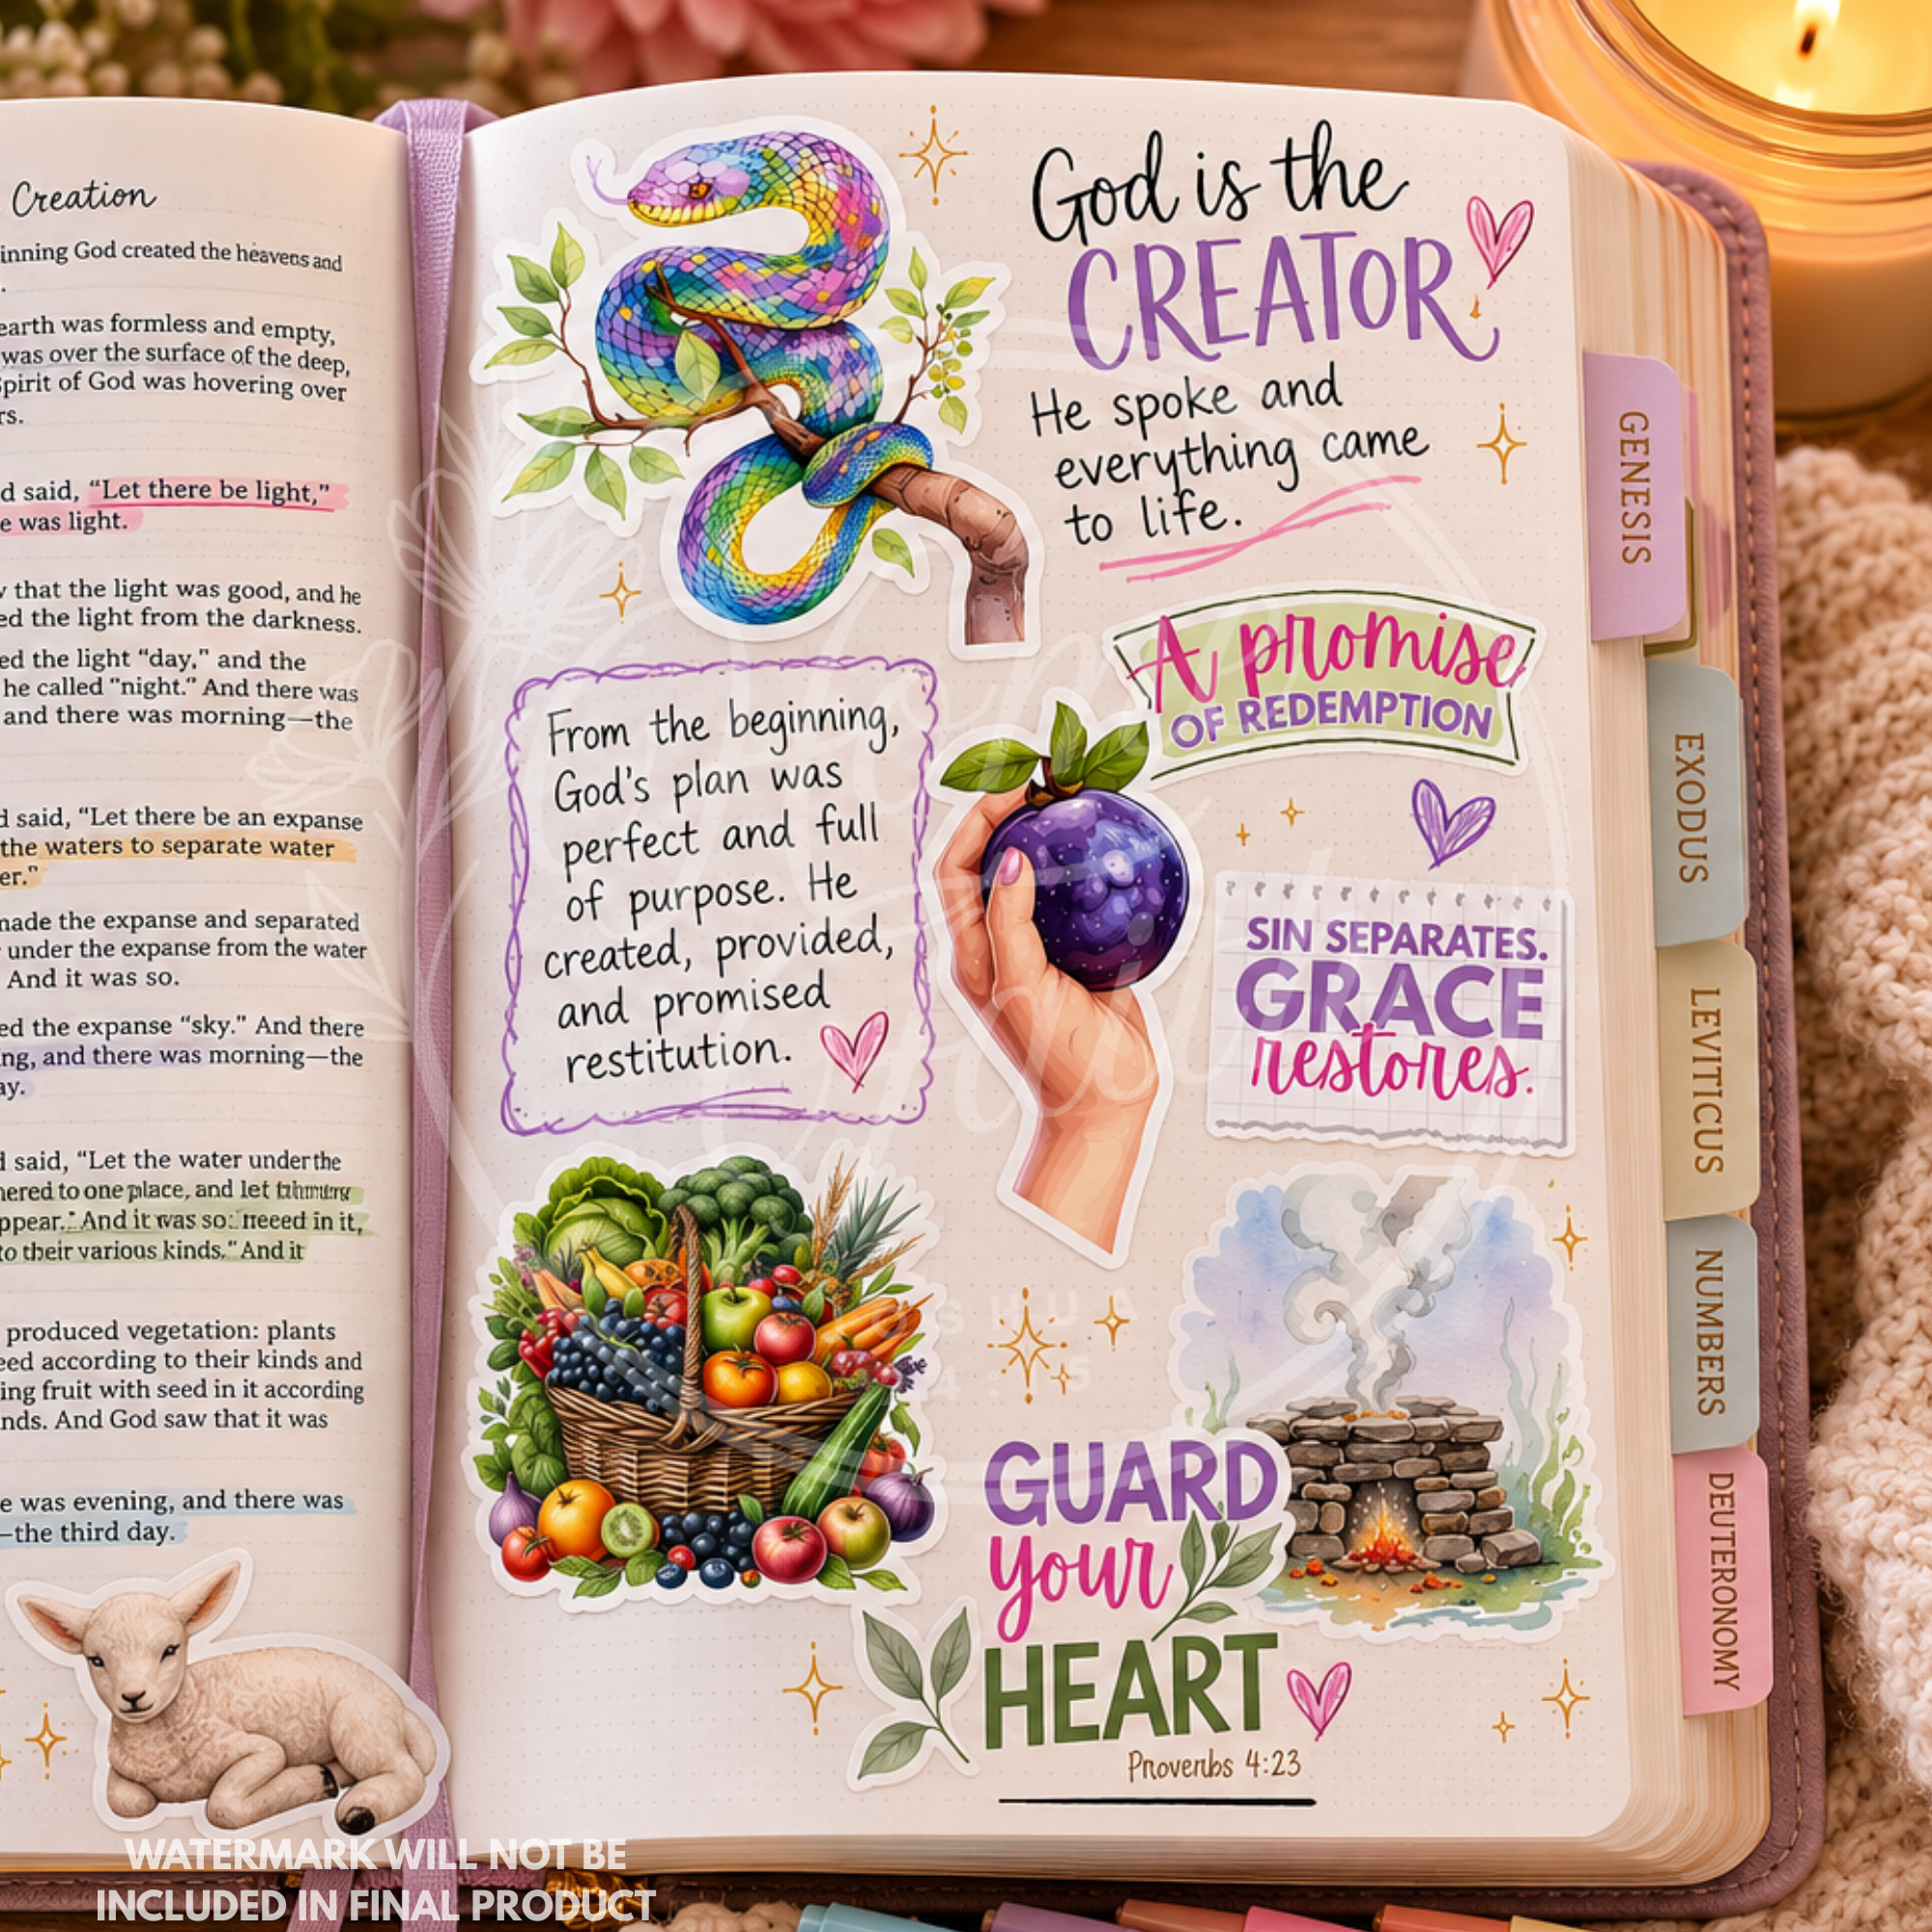 Creation
inning God created the heavens and
.
earth was formless and empty,
was over the surface of the deep,
Spirit of God was hovering over
rs.
d said, “Let there be light,”
e was light.
that the light was good, and he
ed the light from the darkness.
ed the light “day,” and the
he called “night.” And there was
and there was morning—the
d said, “Let there be an expanse
the waters to separate water
er.”
made the expanse and separated
under the expanse from the water
And it was so.
ed the expanse “sky.” And there
ing, and there was morning—the
ay.
d said, “Let the water under the
hered to one place, and let
ppear. And it was so: in it,
to their various kinds.” And it
produced vegetation: plants
eed according to their kinds and
ing fruit with seed in it according
nds. And God saw that it was
e was evening, and there was
—the third day.
God is the
CREATOR
He spoke and
everything came
to life.
A promise
OF REDEMPTION
From the beginning,
God's plan was
perfect and full
of purpose. He
created, provided,
and promised
restitution.
SIN SEPARATES.
GRACE
restores.
GUARD
your
HEART
Proverbs 4:23
GENESIS
EXODUS
LEVITICUS
NUMBERS
DEUTERONOMY
WATERMARK WILL NOT BE
INCLUDED IN FINAL PRODUCT